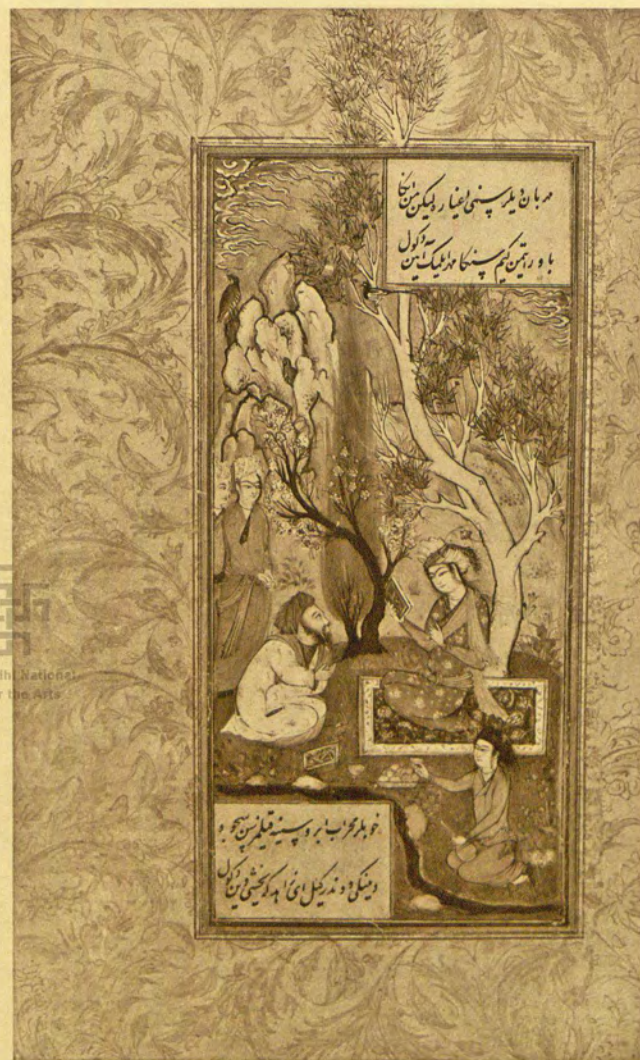 مهربان دیرلر سنی اغیاره لیکن من انکا
باور اتمن کیم سنکا مهر ایلمک آیین دکول
خوبلر محراب ابروسینه قیلمزسن سجود
دینکی دوندرکیل ای زاهد که یخشی دین دکول
National
the Arts